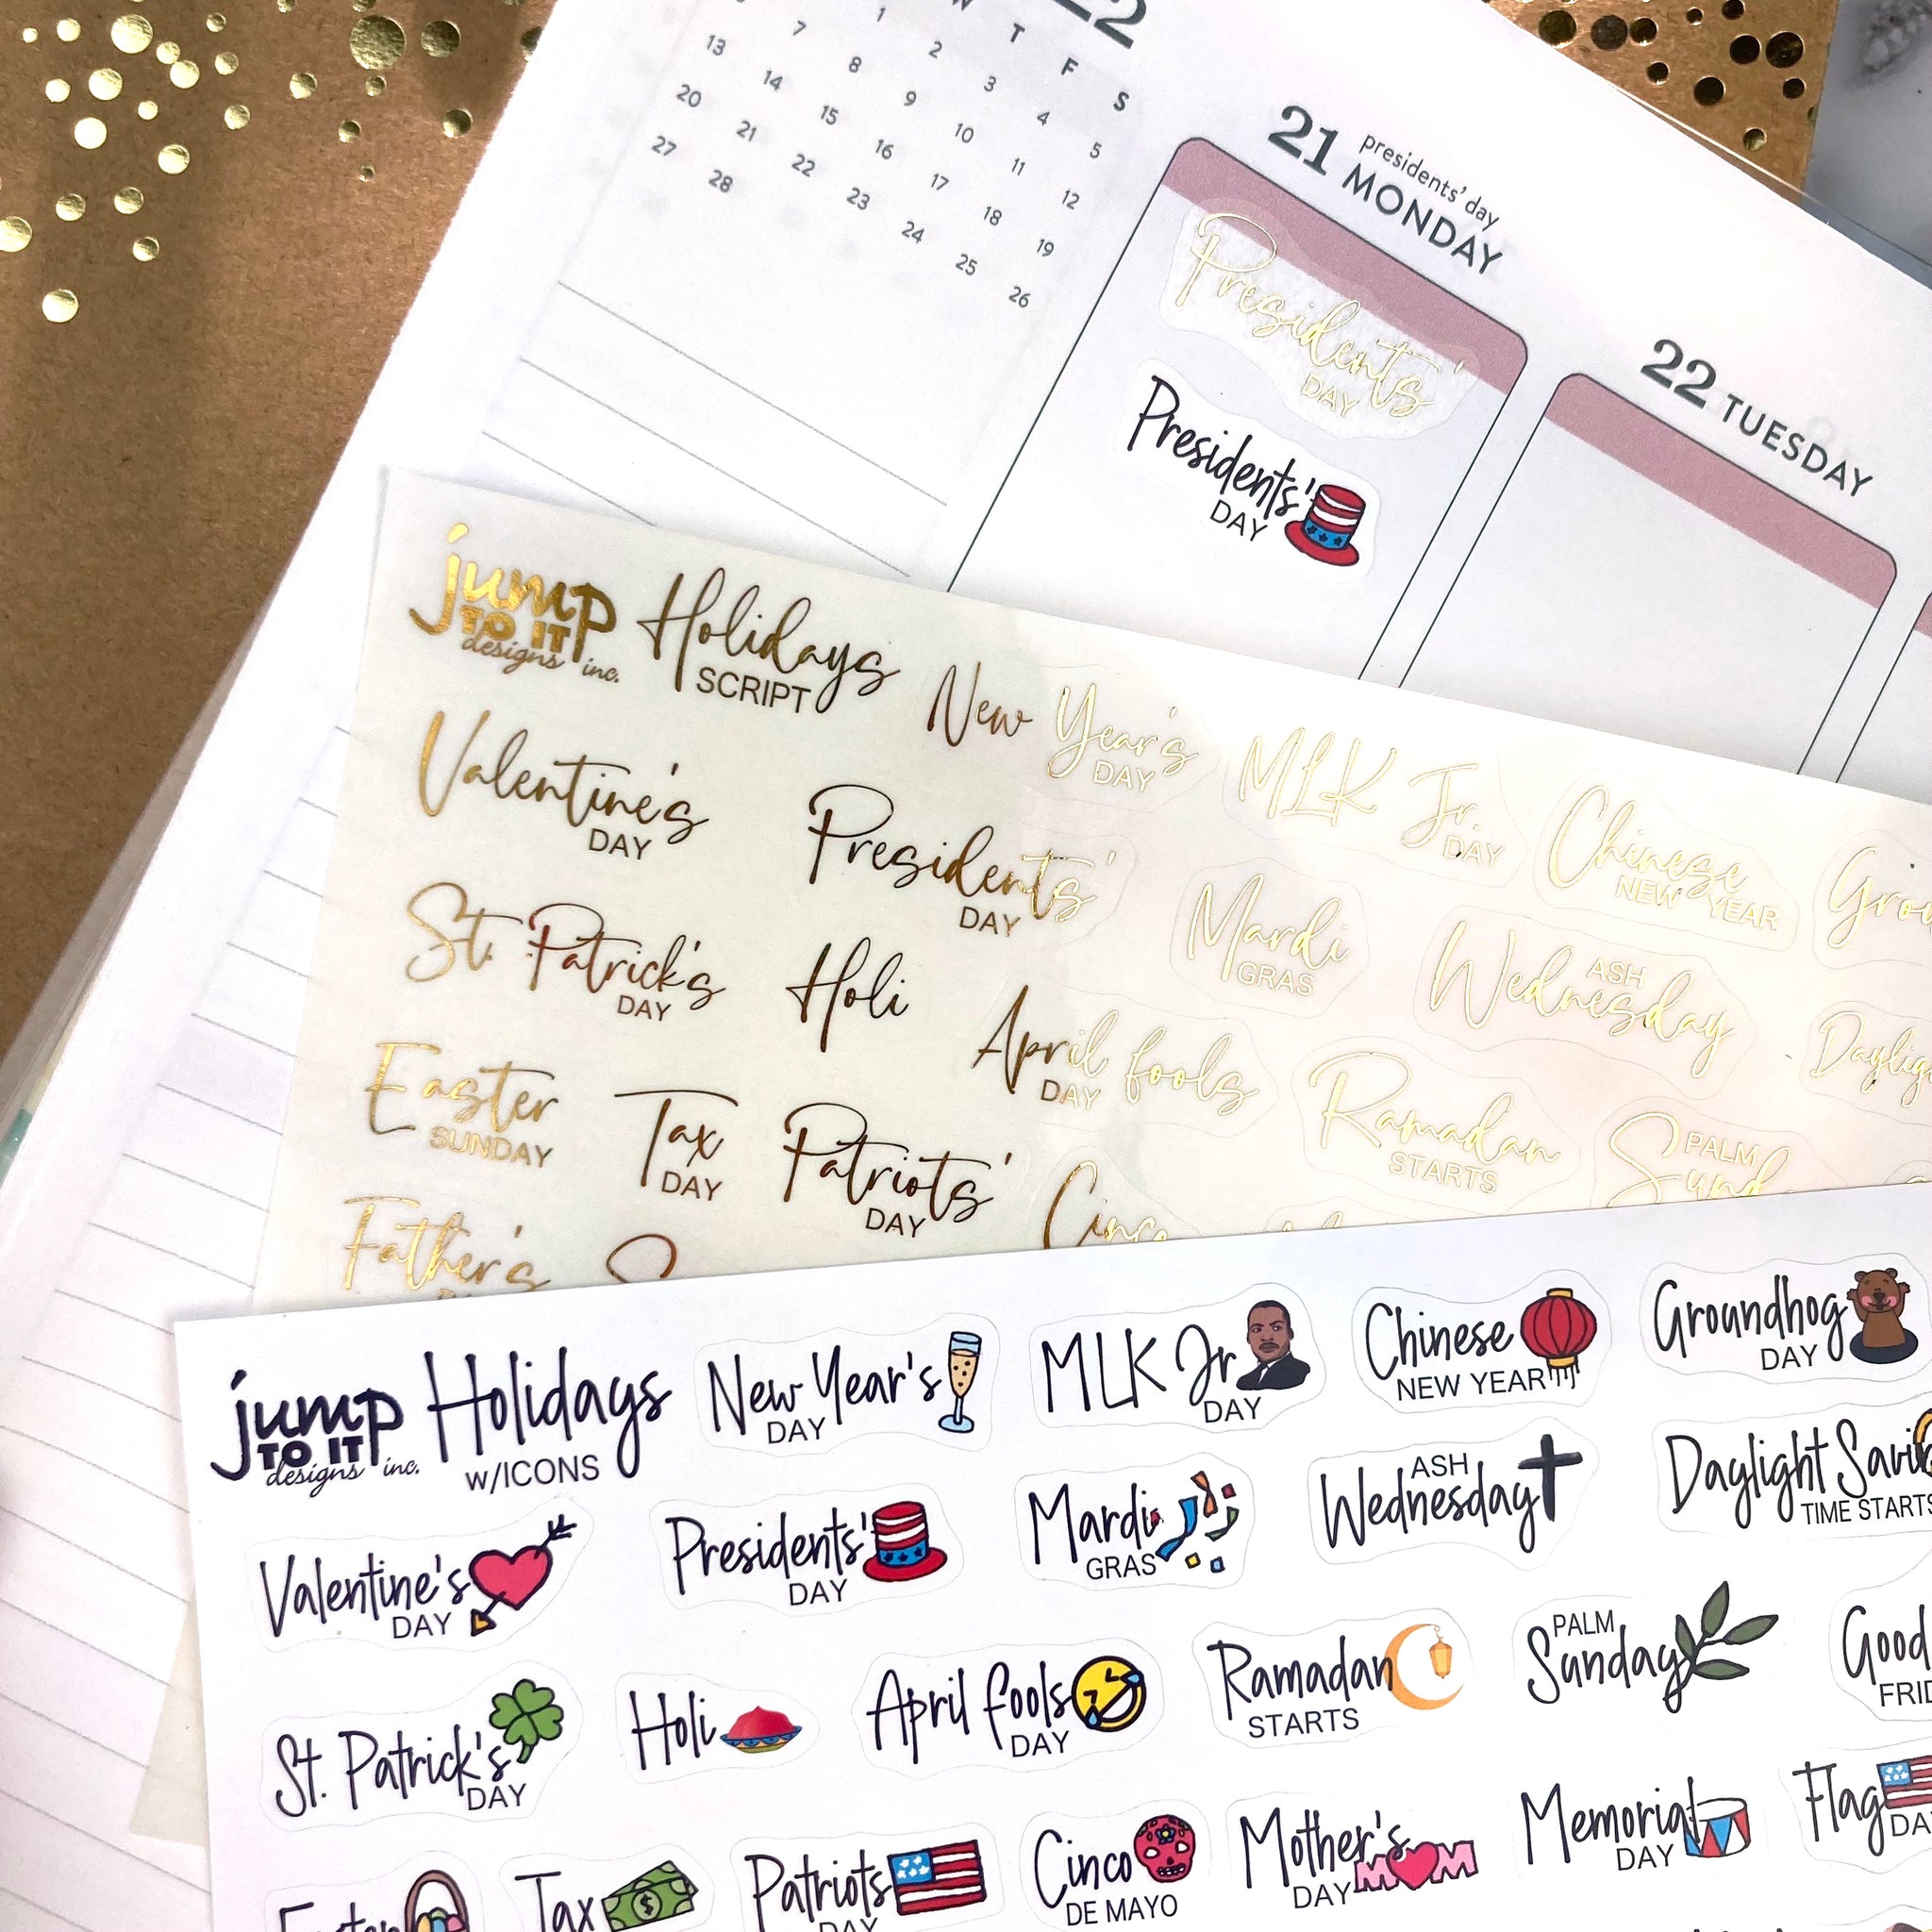 22
W T F S
1 2 3 4 5
7 8 9 10 11 12
13 14 15 16 17 18 19
20 21 22 23 24 25 26
27 28
21 presidents' day
MONDAY
22 TUESDAY
Presidents'
DAY
Presidents'
DAY
jump
TO IT
designs inc.
Holidays
SCRIPT
New Year's
DAY
MLK Jr.
DAY
Chinese
NEW YEAR
Valentine's
DAY
Presidents'
DAY
Mardi
GRAS
ASH
Wednesday
St. Patrick's
DAY
Holi
April fools
DAY
Ramadan
STARTS
PALM
Easter
SUNDAY
Tax
DAY
Patriots'
DAY
Cinco
Father's
jump
TO IT
designs inc.
Holidays
w/ICONS
New Year's
DAY
MLK Jr
DAY
Chinese
NEW YEAR
Groundhog
DAY
Valentine's
DAY
Presidents'
DAY
Mardi
GRAS
ASH
Wednesday
Daylight
TIME STARTS
St. Patrick's
DAY
Holi
April fools
DAY
Ramadan
STARTS
PALM
Sunday
Good
Easter
Tax
Patriots
DAY
Cinco
DE MAYO
Mother's
DAY MOM
Memorial
DAY
Flag